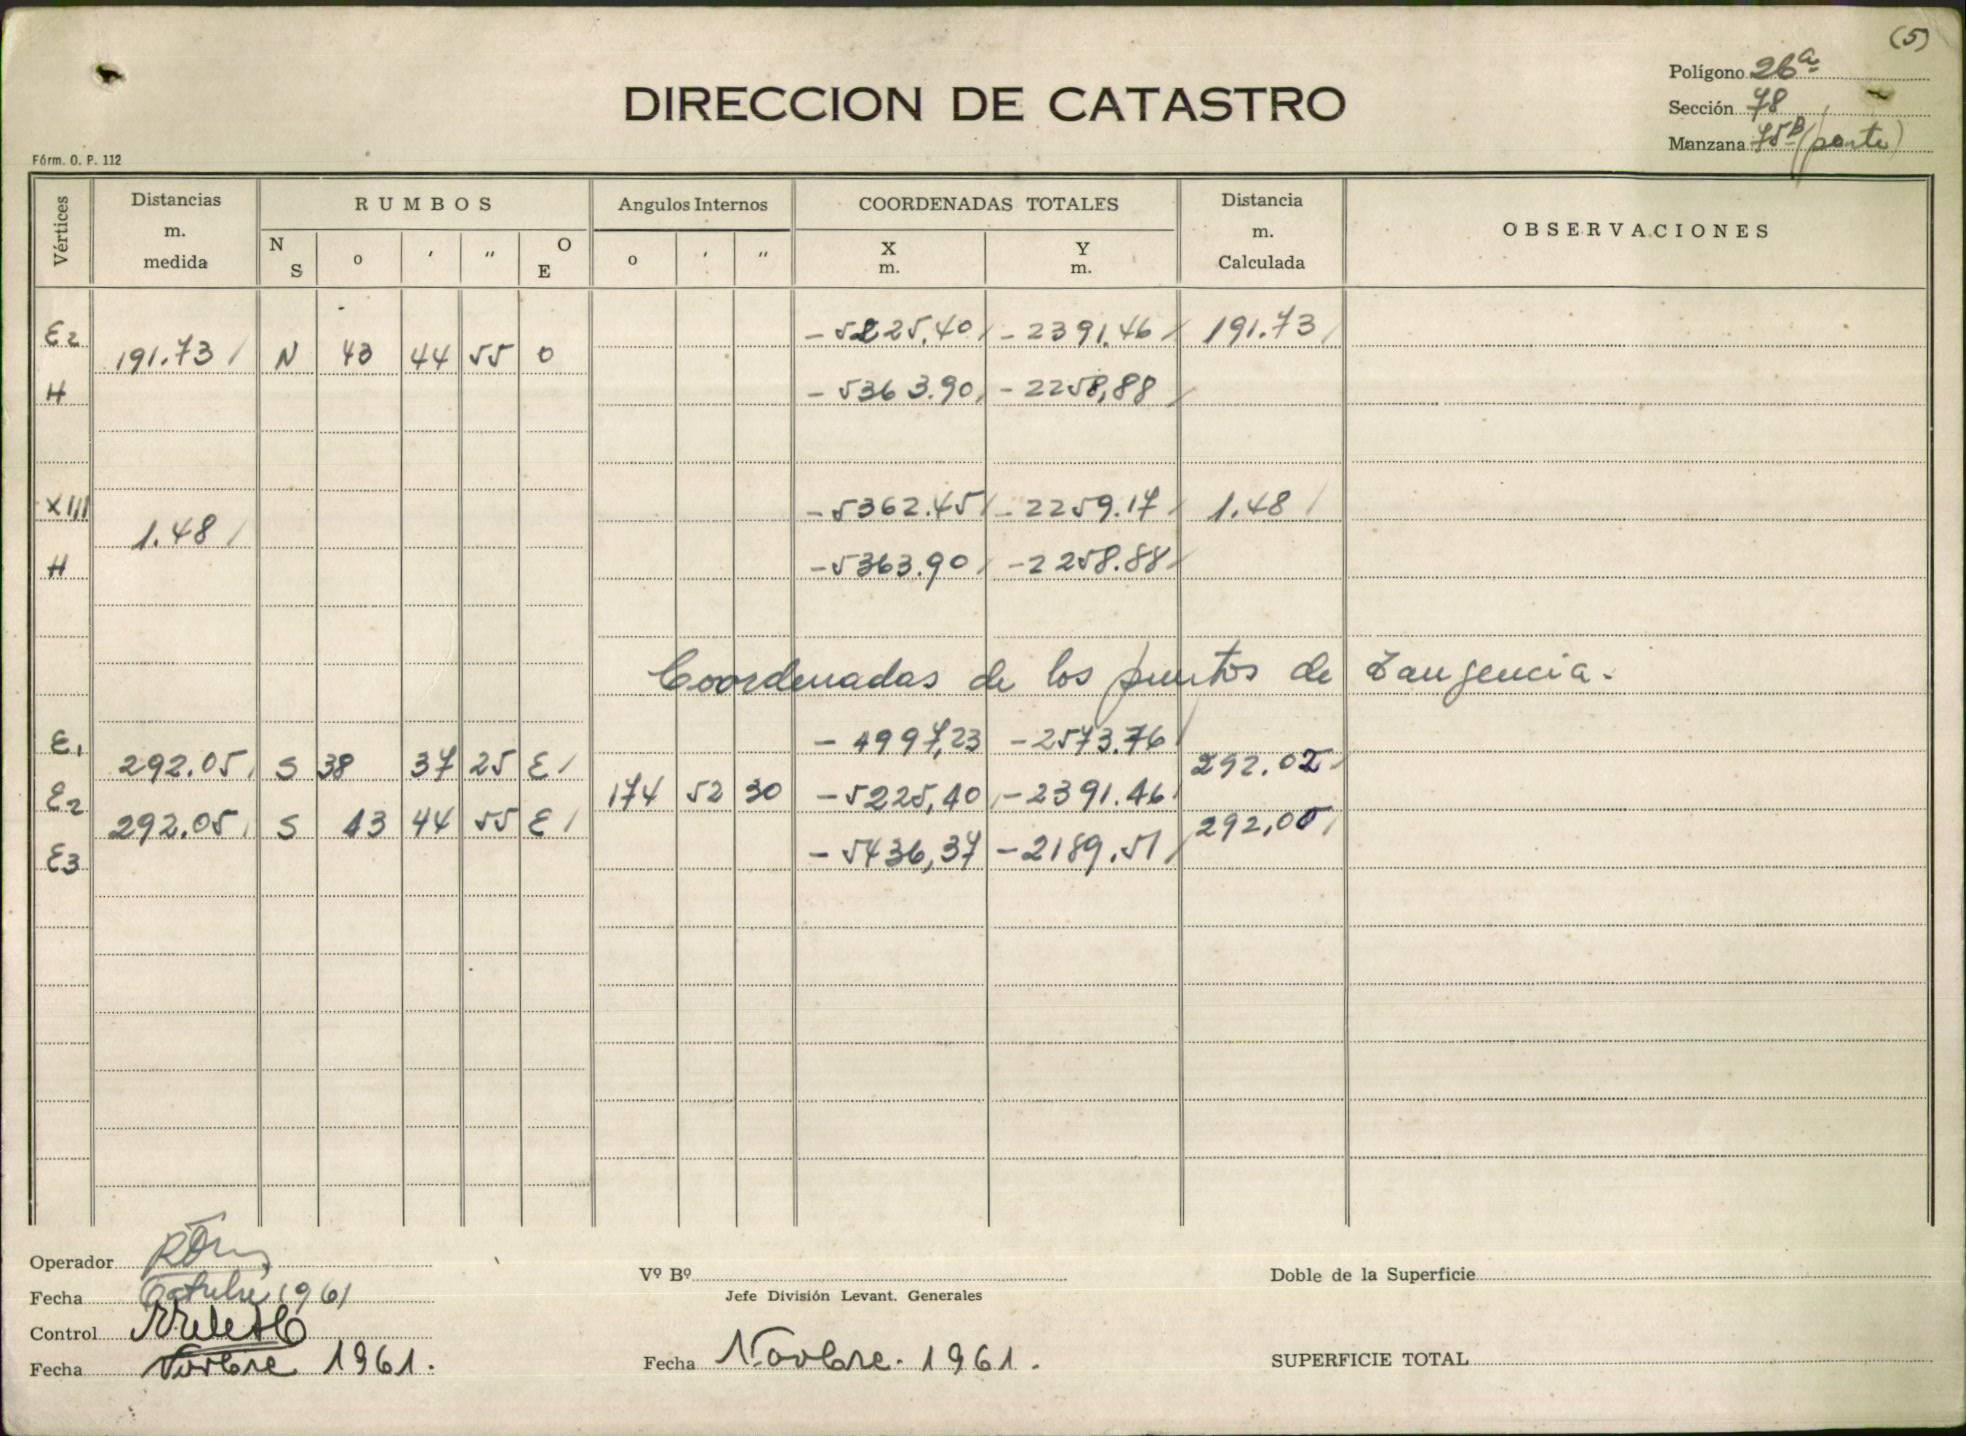 (5)
DIRECCION DE CATASTRO
Polígono 26ª
Sección 78
Manzana 75B (parte)
Fórm. O. P. 112
Vértices Distancias m. medida RUMBOS Angulos Internos COORDENADAS TOTALES Distancia m. Calculada OBSERVACIONES
N S o ' " O E o ' " X m. Y m.
E2 -5225,40 -2391.46 191.73
191.73 N 43 44 55 O
H -5363.90 -2258,88
XIII -5362.45 -2259.17 1.48
1.48
H -5363.90 -2258.88
Coordenadas de los puntos de tangencia.
E1 -4997,23 -2573.76
292.05 S 38 37 25 E 292.02
E2 174 52 30 -5225,40 -2391.46
292.05 S 43 44 55 E 292,05
E3 -5436,37 -2189.51
Operador
Fecha Octubre 1961
Control
Fecha Novbre 1961.
Vº Bº
Jefe División Levant. Generales
Fecha Novbre. 1961.
Doble de la Superficie
SUPERFICIE TOTAL